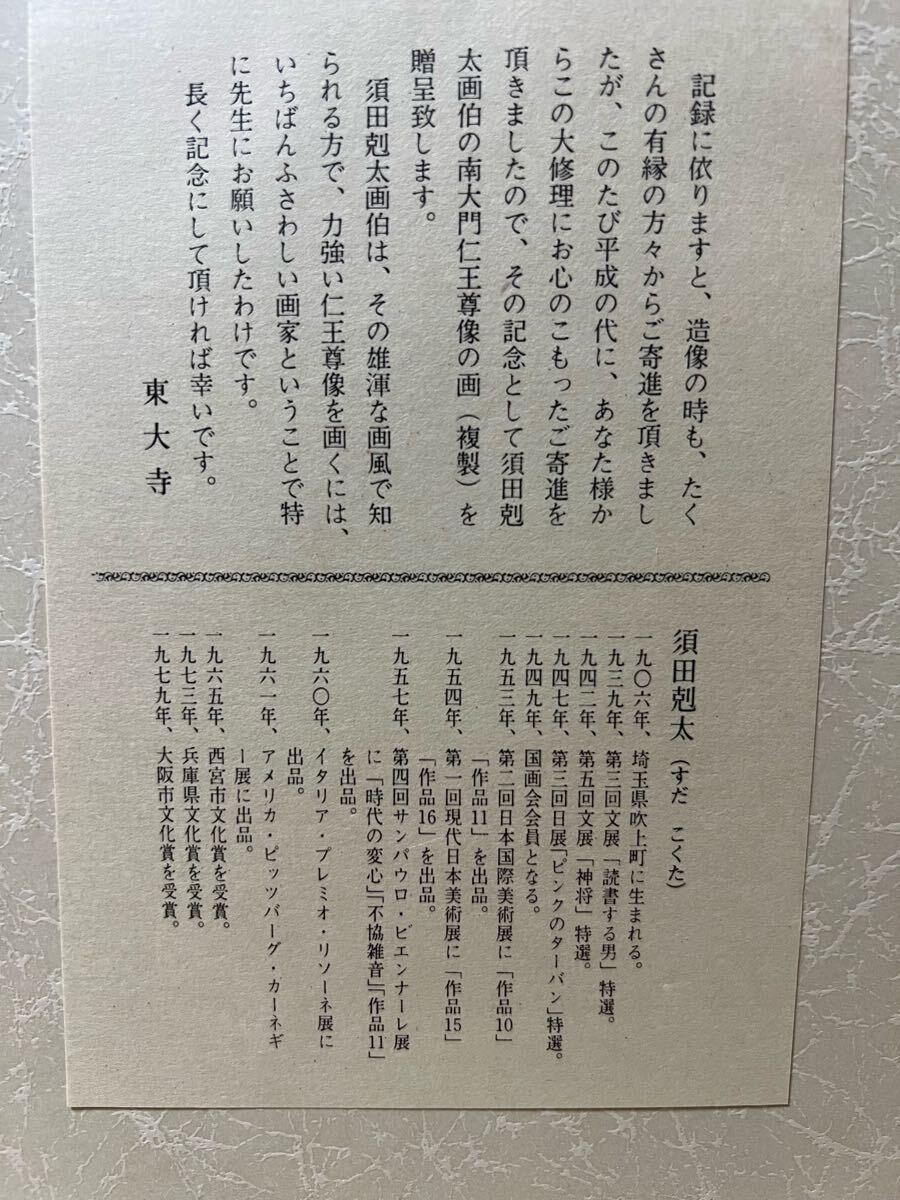 記録に依りますと、造像の時も、たく
さんの有縁の方々からご寄進を頂きまし
たが、このたび平成の代に、あなた様か
らこの大修理にお心のこもったご寄進を
頂きましたので、その記念として須田剋
太画伯の南大門仁王尊像の画（複製）を
贈呈致します。
須田剋太画伯は、その雄渾な画風で知
られる方で、力強い仁王尊像を画くには、
いちばんふさわしい画家ということで特
に先生にお願いしたわけです。
長く記念にして頂ければ幸いです。
東大寺
須田剋太（すだ　こくた）
一九〇六年、埼玉県吹上町に生まれる。
一九三九年、第三回文展「読書する男」特選。
一九四二年、第五回文展「神将」特選。
一九四七年、第三回日展「ピンクのターバン」特選。
一九四九年、国画会会員となる。
一九五三年、第二回日本国際美術展に「作品10」
「作品11」を出品。
一九五四年、第一回現代日本美術展に「作品15」
「作品16」を出品。
一九五七年、第四回サンパウロ・ビエンナーレ展
に「時代の変心」「不協雑音」「作品11」
を出品。
一九六〇年、イタリア・プレミオ・リソーネ展に
出品。
一九六一年、アメリカ・ピッツバーグ・カーネギ
ー展に出品。
一九六五年、西宮市文化賞を受賞。
一九七三年、兵庫県文化賞を受賞。
一九七九年、大阪市文化賞を受賞。